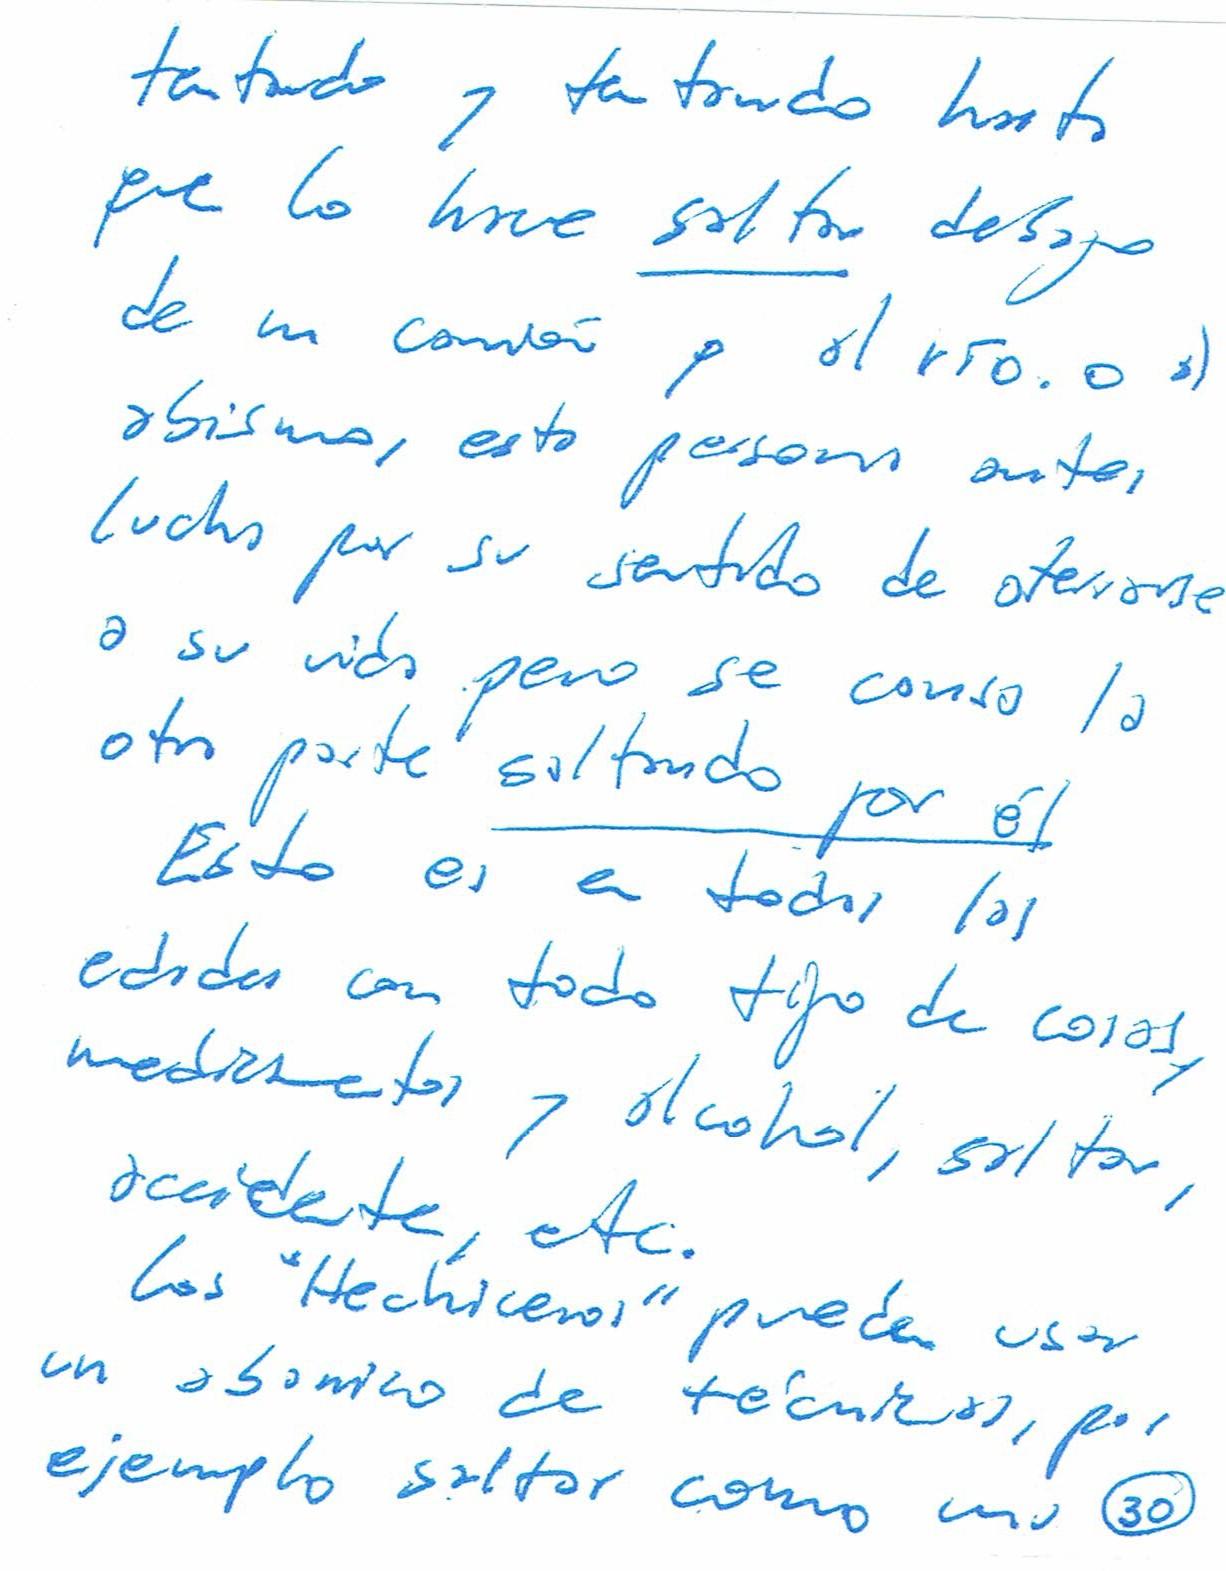 tentando y tentando hasta
que lo hace saltar debajo
de un camión o al río. o al
abismo, esta persona antes
lucha por su sentido de aferrarse
a su vida pero se cansa la
otra parte saltando por él
Esto es en todas las
edades con todo tipo de cosas,
medicamentos y alcohol, saltar,
accidente, etc.
Los "Hechiceros" pueden usar
un abanico de técnicas, por
ejemplo saltar como una 30